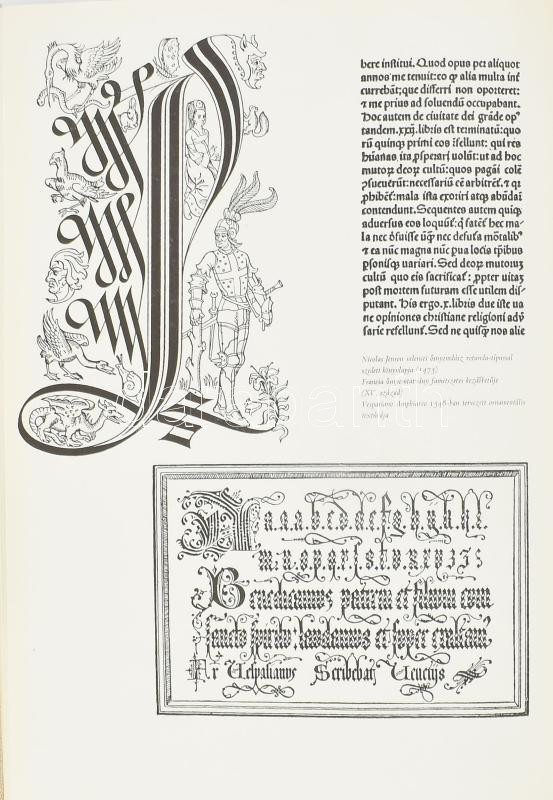 bere institui. Quod opus per aliquot
annos me tenuit: eo ꝙ alia multa inf
currebãt; que differri non oporteret:
⁊ me prius ad soluendũ occupabant.
Hoc autem de ciuitate dei grãde opꝰ
tandem .xxij. libris est terminatũ: quo
rũ quinqꝫ primi eos ĩfellunt: qui res
hũanas ita ꝓsperari uolũt: ut ad hoc
mutoꝝ deoꝝ cultũ: quos pagãi colẽ
ꝓsueuerũt: necessariũ cẽ arbitrẽt. ⁊ qꝛ
ꝓhibẽt: mala ista exoriri atqꝫ abũdãi
contendunt. Sequentes autem quiqꝫ
aduersus eos loquũt: q̃ fatẽt hec ma-
la nec
⁊ ea nũc magna nũc ꝑua locis tp̃ibus
ꝑsonisqꝫ uariari. Sed deoꝝ mutoruꝫ
cultũ quo eis sacrificat: ꝓpter uitaꝫ
post mortem futuram esse utilem dis-
putant. His ergo .x. libris due iste ua
ne opiniones christiane religioni adũ
sarie refellunt. Sed ne quisqꝫ nos alie
Nicolas Jenson velencei ősnyomdász rotunda-típussal
szedett könyvlapja (1475)
Francia ősnyomtatvány fametszetes kezdőbetűje
(XV. század)
Vespasiano Amphiareo 1548-ban tervezett ornamentális
textúrája
a.a.b.c.d.e.f.g.h.i.k.l.
m.n.o.p.q.r.s.t.v.x.y.z.
Benedicamus patrem et filium cum
sancto spiritu laudemus et super exaltemus
Fr Vespasianus Scribebat Venetijs